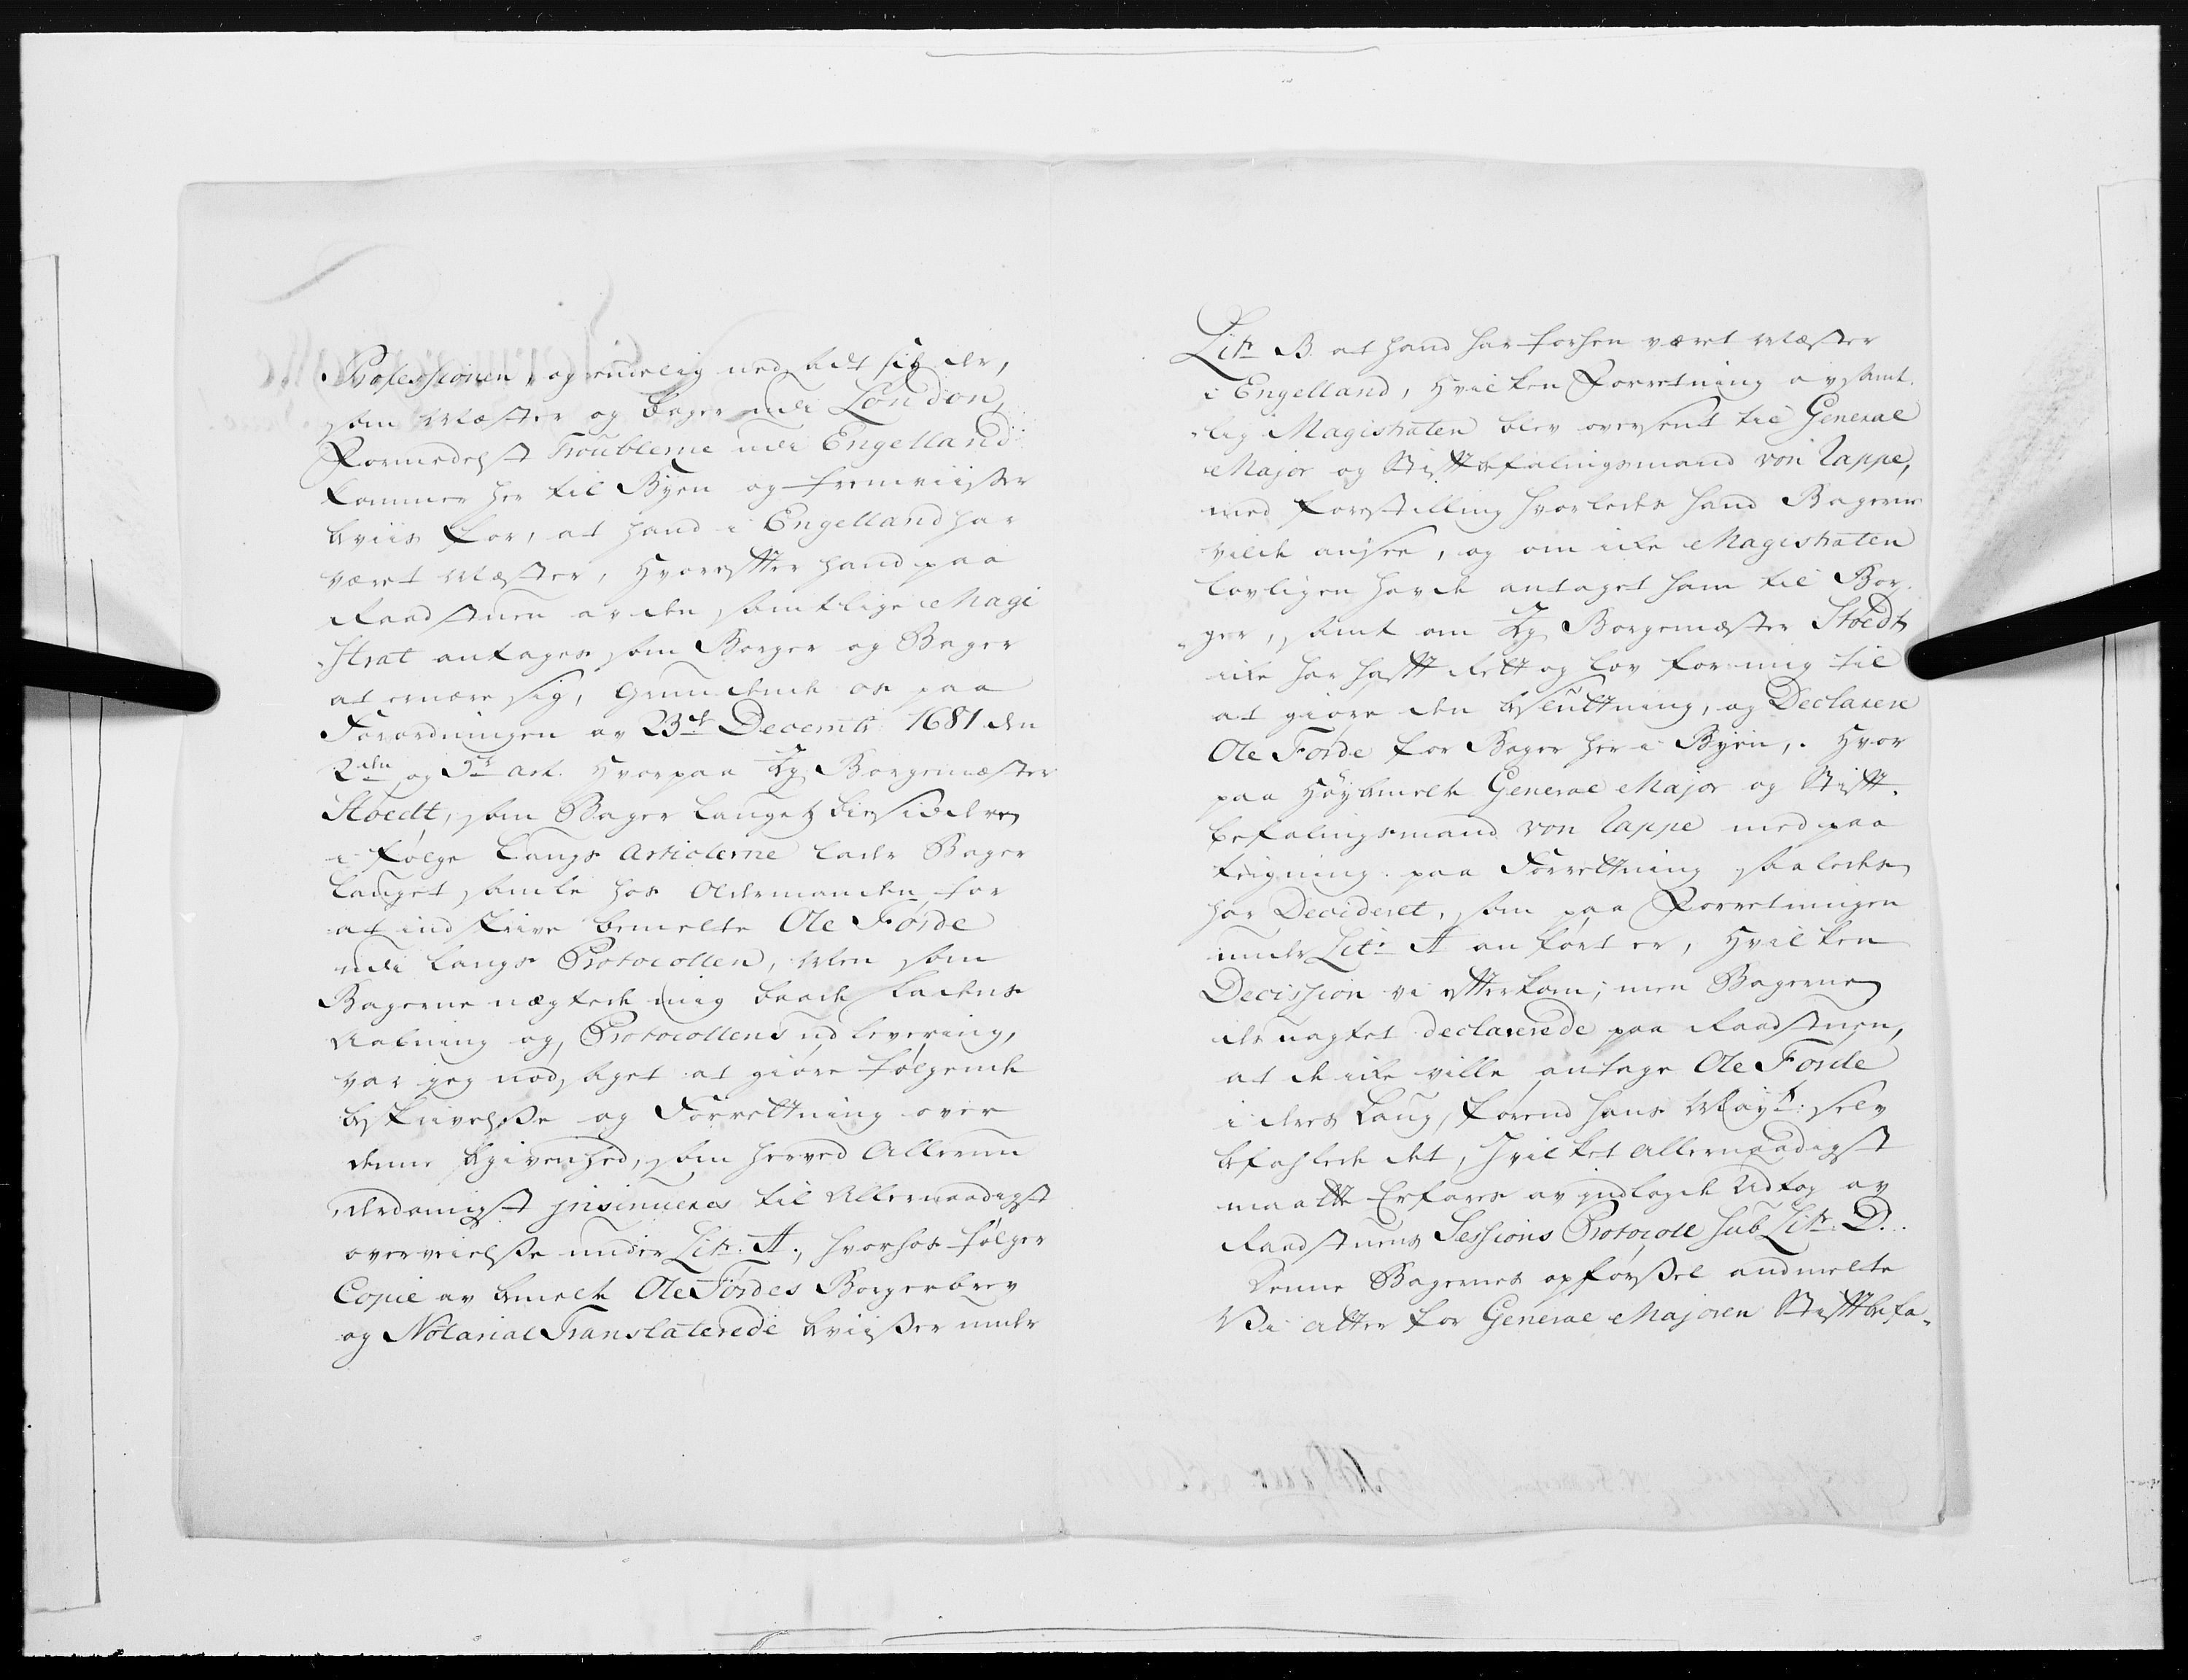 Professionen, og endelig nedsadt sig der,
som Mæster og Bager udi London,
Formedelst Troublerne udi Engelland
kommer her til Byen og fremviiser
beviis for, at hand i Engelland har
været Mæster, Hvorefter hand paa
Raadstuen av den samtlige Magi
strat antages som Borger og Bager
at ernære sig, Grundende os paa
Forordningen av 23de Decembr 1681 den
2den og 5te art. Hvorpaa Jeg Borgemæster
Stoedt, som Bager Laugets Bisiddere
i følge Laugs Articlerne lader Bager
Lauget samle hos Oldermanden for
at indskrive bemelte Ole Førde
udi Laugs Protocollen, Men som
Bagerne nægtede mig baade Ladens
Aabning og Protocollens udlevering,
var jeg nødsaget at giøre følgende
beskrivelsse og Forrettning over
denne begivenhed, som herved Allerun
derdanigst insinueres til Allernaadigst
overveielsse under Litr. A., hvorhos følger
Copie av bemelte Ole Førdes Borgerbrev
og Notarial Translaterede beviisser under
Litr B. at hand har forhen været Mæster
i Engelland, Hvilken Forretning av samt.
lig Magistraten blev oversent til General
Major og Stiftbefalingsmand von Lappe,
med forestilling hvorledes hand Bagerne
vilde ansee, og om icke Magistraten
lovligen havde antaget ham til Bor.
ger, samt om Jeg Borgemæster Stoedt
icke har haft Rett og Lov for mig til
at giøre den besluttning, og Declarere
Ole Førde for Bager her i Byen,. Hvor
paa Høybemelte General Major og Stift.
befalingsmand von Lappe med paa
teigning paa Forrettning saaledes
har Decideret, som paa Forretningen
under Litr A anført er, Hvilken
Decission vi efterkom; men Bagerne
des uagtet declarerede paa Raadstuen,
at de icke ville antage Ole Forde
i deres Laug, førend hans Mayt: selv
befahlede det, Hvilket Allernaadigst
maatte Erfares av indlagde Udtog av
Raadstuens Sessions Protocoll sub Litr. D.
Denne Bagernes opførssel andmelte
Vi atter for General Majoren Stiftbefa-